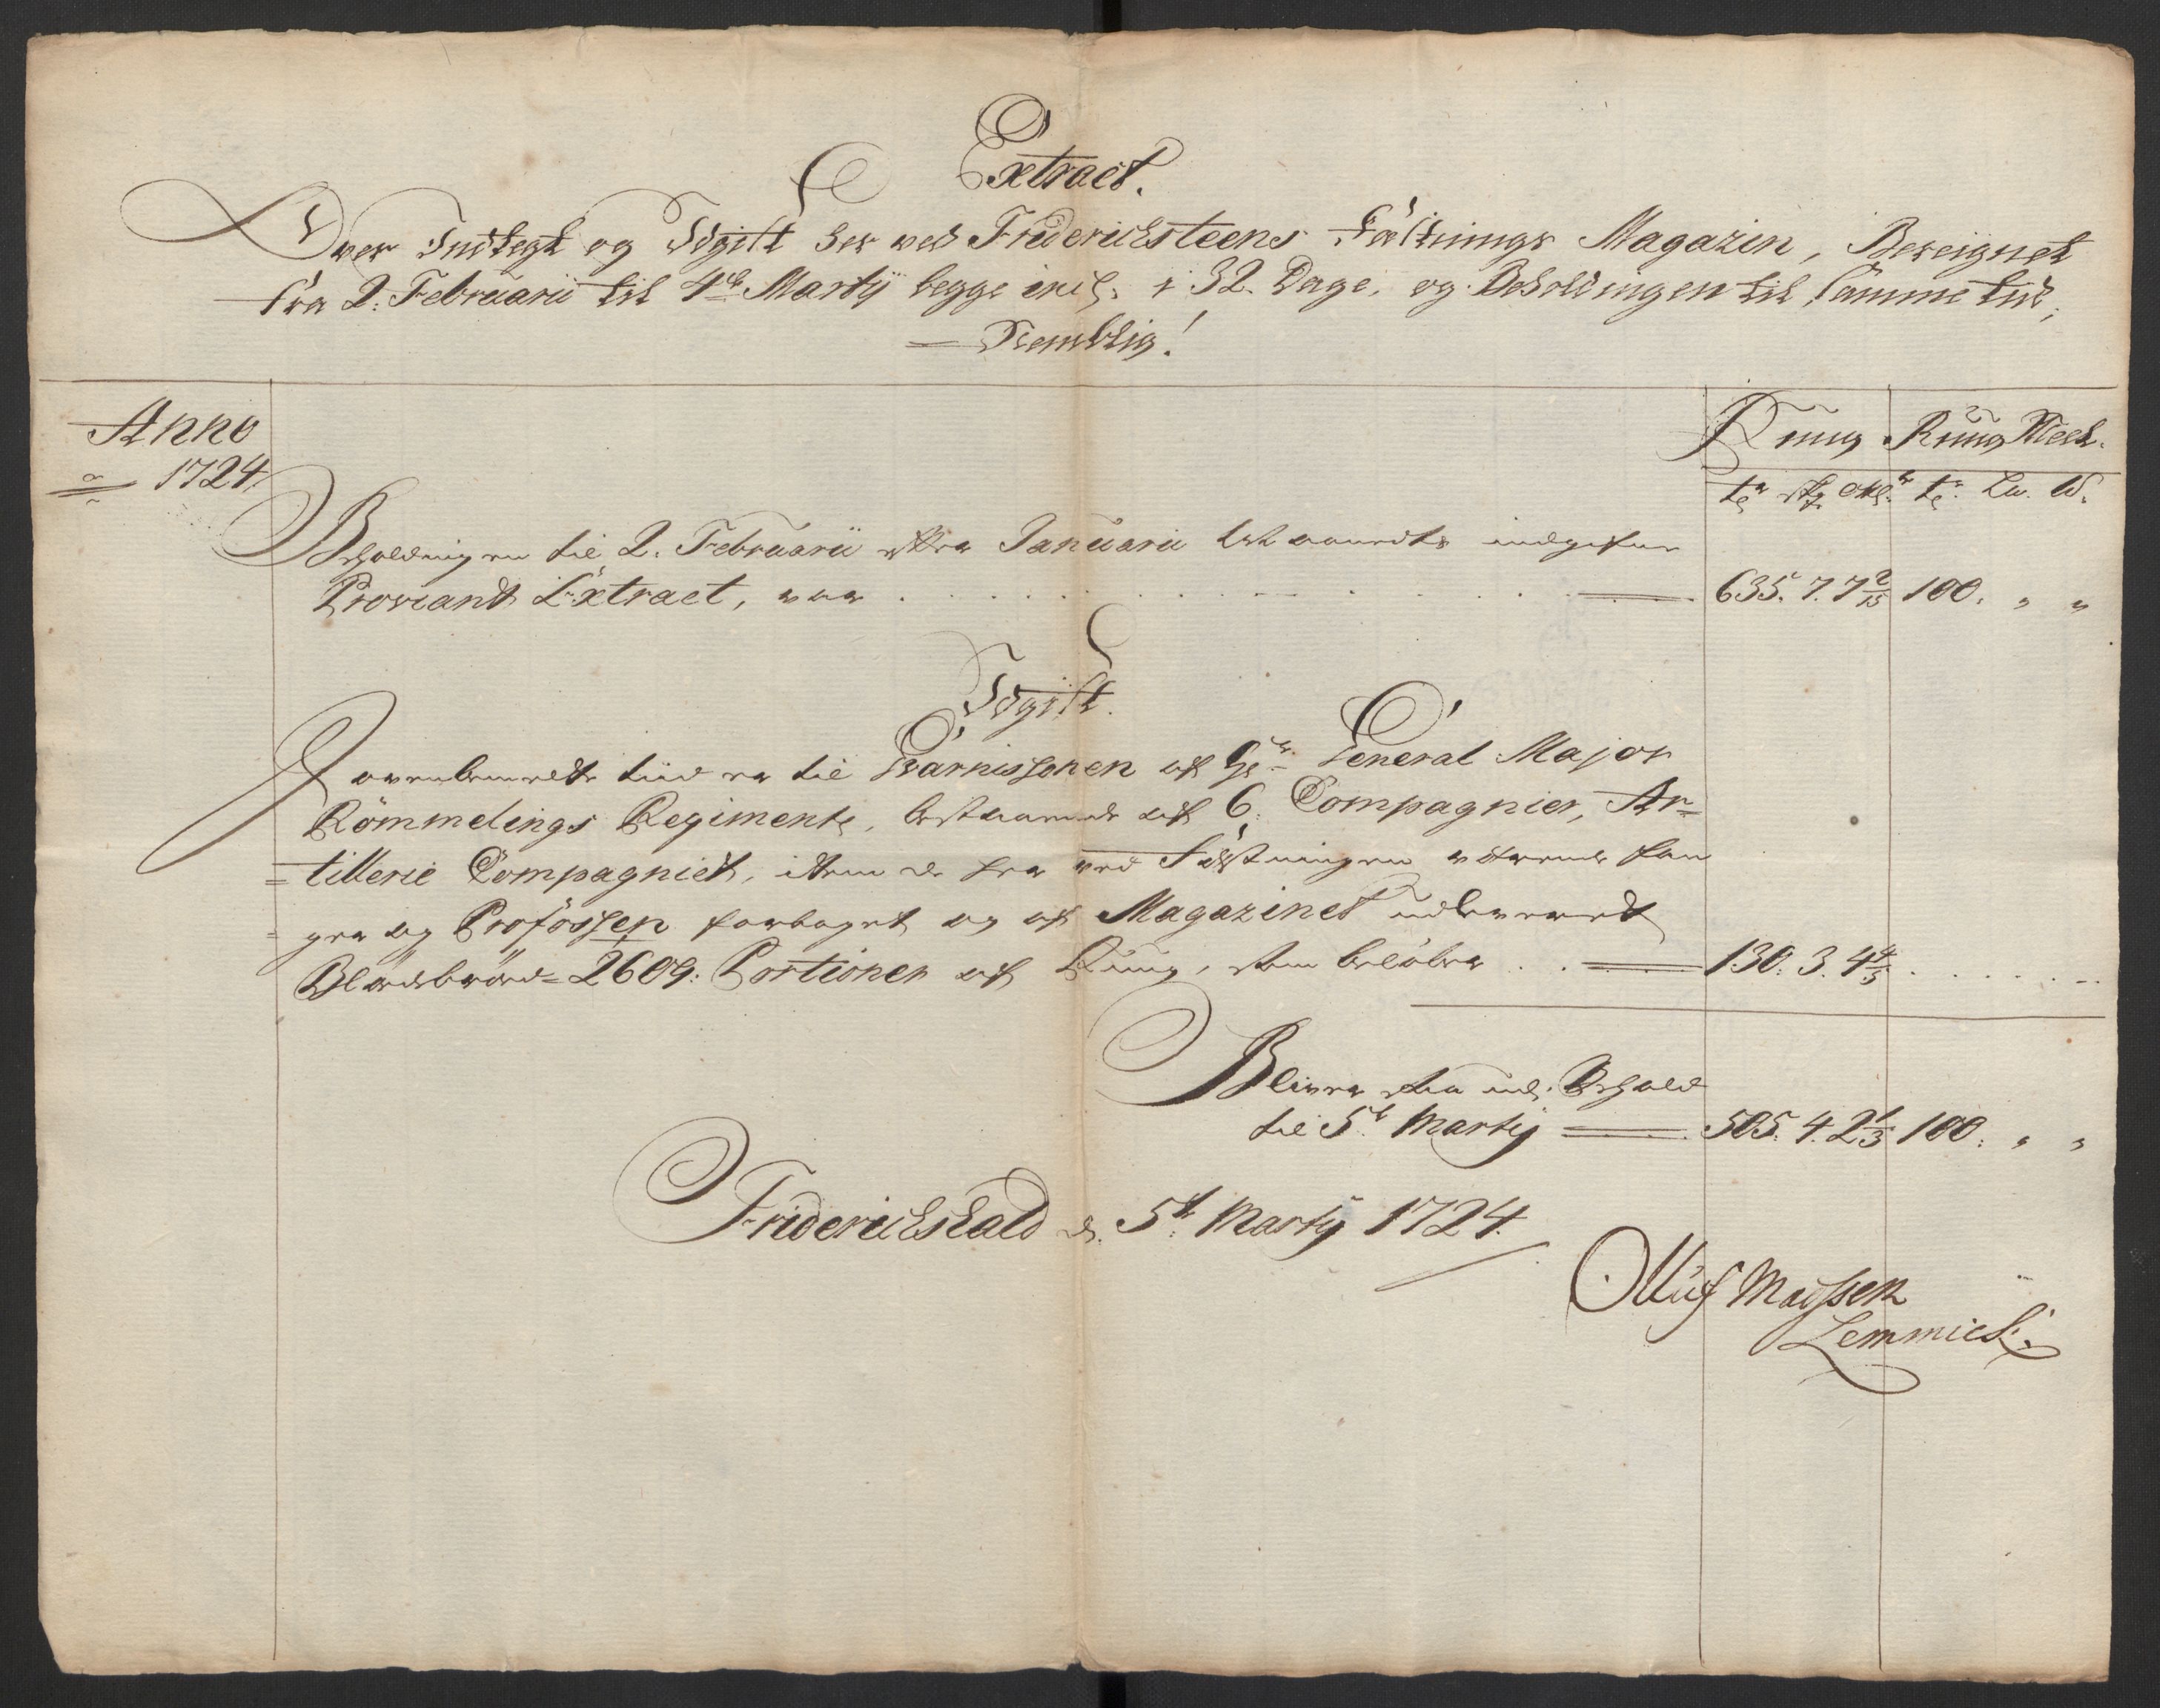 Extract.
Over Indtegt og Udgift her ved Friderichsteens Fæstnings Magazin, Bereignet
fra 2. Februarii til 4de Martij begge incl: i 32. Dage, og Beholdingen til samme tid,
Nemblig!
Anno
1724.
Rúúg Rúúg Meel.
te skp ottr te Lw. W.
Beholdningen til 2. Februarii efter Januarii Maaneds indgifne
Proviant Extract, var 635. 7. 7 2/15 100. " "
Udgift.
J ovenbemelte tiid er til Garnissonen af Hr. General Major
Römmelings Regimente, bestaaende af 6. Compagnier, Ar-
tillerie Compagniet, item de her ved Fæstningen værende fan
ger og Profossen forbaget og af Magazinet udleveret
Blödebröd 2609. Portioner af Rúúg, som belöber 130. 3. 4 4/5
Bliver saa udi Behold
til 5te Martij 505. 4. 2 1/3 100. " "
Friderichshald d. 5te Martij 1724.
Olluf Madssen
Lemmich